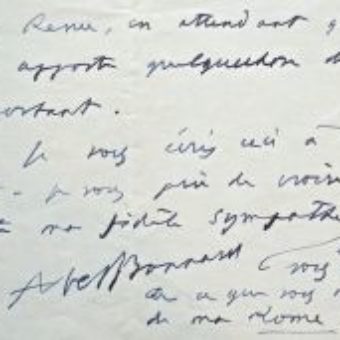 Revue, en attendant q
apporte quelquechose d
portant.
Je vous écris ceci à
je vous prie de croire
à ma fidèle sympathie
Abel Bonnard
vous
de ce que vous
de ma Rome